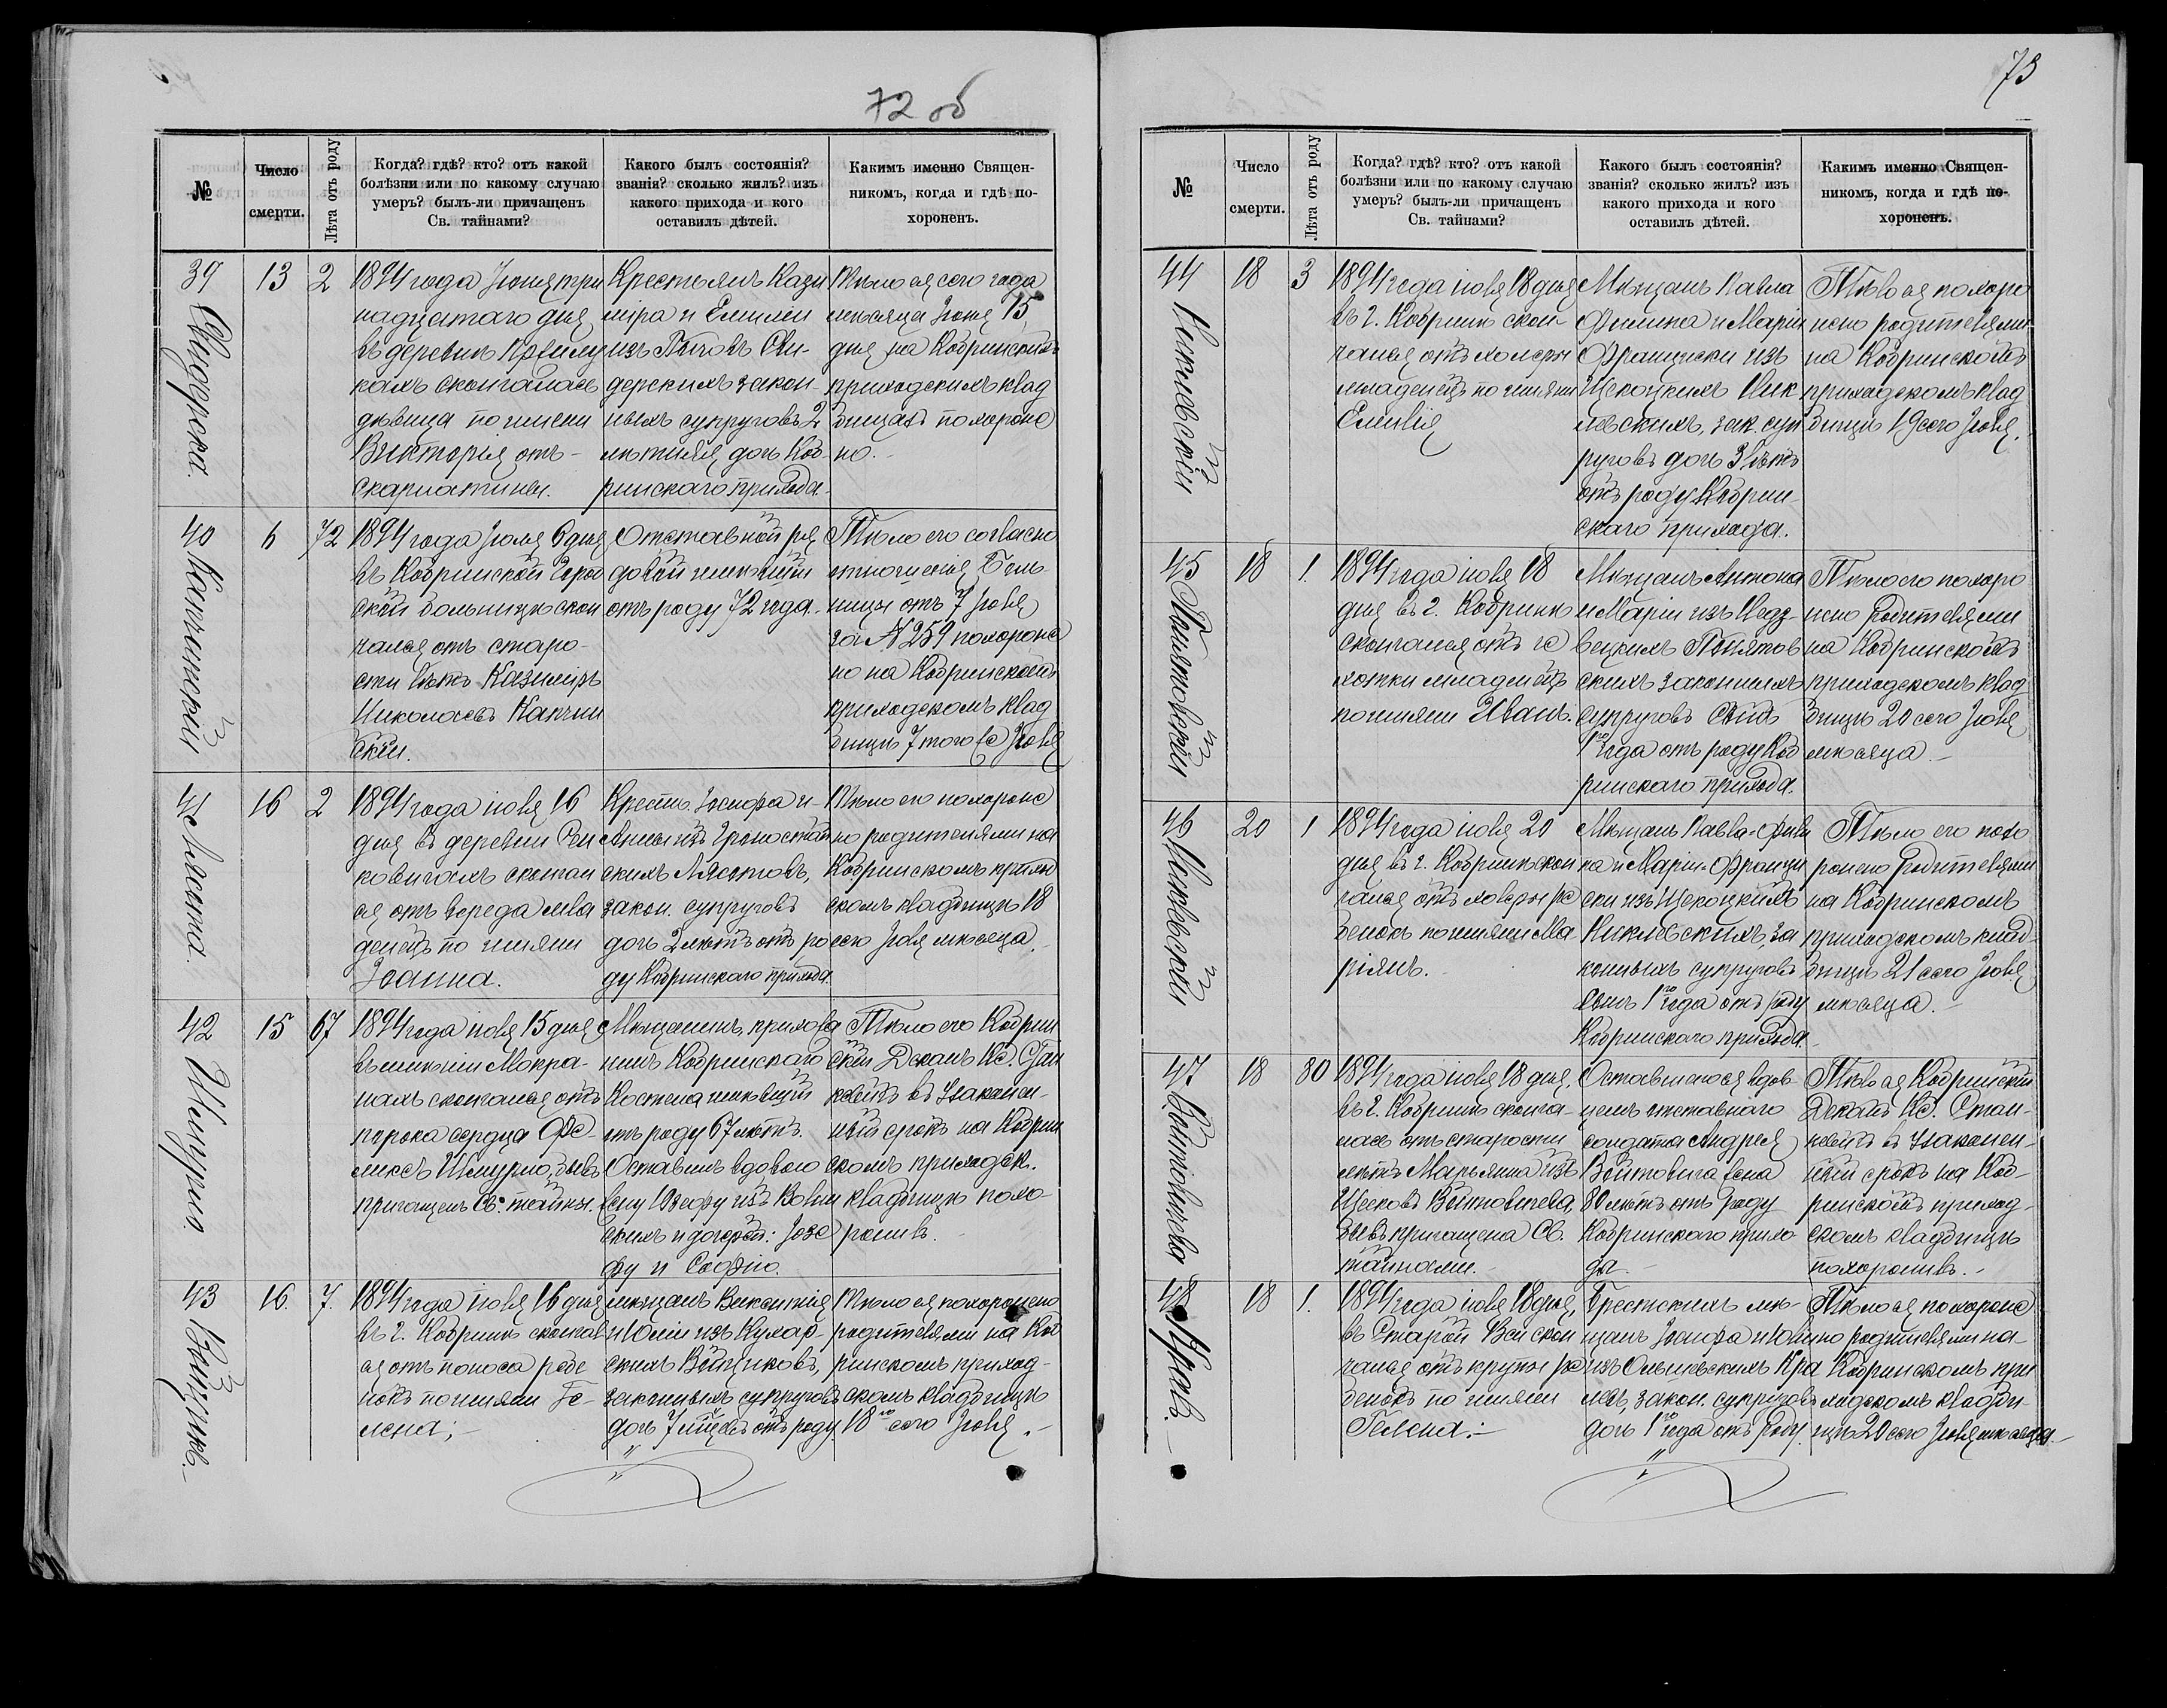 72 об
№
Число
смерти.
Лѣта отъ роду
Когда? гдѣ? кто? отъ какой
болѣзни или по какому случаю
умеръ? былъ-ли причащенъ
Св. тайнами?
Какого былъ состоянія?
званія? сколько жилъ? изъ
какого прихода и кого
оставилъ дѣтей.
Какимъ именно Священ-
никомъ, когда и гдѣ по-
хороненъ.
39
13
2
1894 года Іюня три
надцатаго дня
въ деревнѣ
кахъ скончалась
дѣвица по имени
Викторія отъ
скарлатины.
Крестьянъ Кази
міра и Емиліи
изъ
дерскихъ закон-
ныхъ супруговъ 2
лѣтняя дочь Коб-
ринскаго прихода.
Тѣло ея сего года
мѣсяца Іюня 15
дня на Кобринскихъ
приходскихъ клад
бищахъ похороне
но.
40
6
72
1894 года Іюля 6 дня
въ Кобринской Город
ской больницѣ скон
чался отъ старо-
сти лѣтъ Казиміръ
Николаевъ
скій.
Отставной ря
довой имѣвшій
отъ роду 72 года.
Тѣло его согласно
отношенія Боль
ницы отъ 7 Іюля
за № 259 похороне
но на Кобринскомъ
приходскомъ клад
бищѣ 7 того же Іюля
41 Лястъ
16
2
1894 года іюля 16
дня въ деревни
ковичахъ скончал
ся отъ вереда мла
денецъ по имени
Іоанна.
Крест. Іосифа и
Анны изъ Гроностай
скихъ Лястовъ,
закон. супруговъ
дочь 2 лѣтъ отъ ро
ду Кобринскаго прихода.
Тѣло его похороне
но родителями на
Кобринскомъ приход
скомъ кладбищѣ 18
сего Іюля мѣсяца.
42 Шмурло
15
67
1894 года іюля 15 дня
въ имѣніи Мокра-
нахъ скончался отъ
порока сердца Фе-
ликсъ Шмурло, бывъ
причащенъ Св. тайны.
Мѣщанинъ, прихожа
нинъ Кобринскаго
Костела имѣвшій
отъ роду 67 лѣтъ.
Оставилъ вдовою
жену Юзефу изъ Волын
скихъ и дочерей: Юзе
фу и Софію.
Тѣло его Кобрин
скій Деканъ Кс. Стан
кевичъ въ узаконен-
ный срокъ на Кобрин
скомъ приходск.
кладбищѣ похо-
ронивъ.
43 Войщикъ.
16.
7.
1894 года іюля 16 дня
въ г. Кобринѣ скончал
ся отъ поноса ребе
нокъ по имени Ге-
лена;
мѣщанъ Викентія
и Юліи изъ Кухар-
скихъ Войщиковъ,
законныхъ супруговъ
дочь 7 мѣсяцевъ отъ роду
Тѣло ея похоронено
родителями на Коб
ринскомъ приход-
скомъ кладбищѣ
18 го сего Іюля.
73
№
Число
смерти.
Лѣта отъ роду
Когда? гдѣ? кто? отъ какой
болѣзни или по какому случаю
умеръ? былъ-ли причащенъ
Св. тайнами?
Какого былъ состоянія?
званія? сколько жилъ? изъ
какого прихода и кого
оставилъ дѣтей.
Какимъ именно Священ-
никомъ, когда и гдѣ по-
хороненъ.
44
18
3
1894 года іюля 18 дня
въ г. Кобринѣ скон-
чался отъ холеры
младенецъ по имени
Емилія
Мѣщанъ Павла
Филипа и Маріи
Францишки изъ
Щекоцкихъ Ник
левскихъ, зак. суп
руговъ дочь 3 лѣтъ
отъ роду Кобрин-
скаго прихода.
Тѣло ея похоро
нено родителями
на Кобринскомъ
приходскомъ клад
бищѣ 19 сего Іюля.
45
18
1.
1894 года іюля 18
дня въ г. Кобринѣ
скончался отъ че
хотки младенецъ
по имени Иванъ.
Мѣщанъ Антона
и Маріи изъ Недз-
вецкихъ Понятов
скихъ законныхъ
супруговъ сынъ
1 го года отъ роду Коб
ринскаго прихода.
Тѣло его похоро
нено родителями
на Кобринскомъ
приходскомъ клад
бищѣ 20 сего Іюля
мѣсяца.
46
20
1
1894 года іюля 20
дня въ г. Кобринѣ скон
чался отъ холеры ре
бенокъ по имени Ма
ріянъ.
Мѣщанъ Павла-Фили
па и Маріи-Францы
ски изъ Щекоцкихъ
Никлевскихъ, за
конныхъ супруговъ
сынъ 1 го года отъ роду
Кобринскаго прихода.
Тѣло его похо
ронено родителями
на Кобринскомъ
приходскомъ клад-
бищѣ 21 сего Іюля
мѣсяца.
47 Войтовичева
18
80
1894 года іюля 18 дня,
въ г. Кобринѣ сконча-
лась отъ старости
лѣтъ Марьянна изъ
Войтовичева,
бывъ причащена Св.
тайнами.
Оставшаяся вдов-
отставнаго
солдата Андрея
Войтовича жена
80 лѣтъ отъ роду
Кобринскаго прихо
да.
Тѣло ея Кобринскій
Деканъ Кс. Стан-
кевичъ въ узаконен-
ный срокъ на Коб-
ринскомъ приход-
скомъ кладбищѣ
похоронивъ.
48
18
1.
1894 года іюля 18 дня,
въ Старой Вси скон
чался отъ крупы ре
бенокъ по имени
Гелена.
Брестскихъ мѣ-
щанъ Іосифа и Юліи
изъ Ольшевскихъ Кра
закон. супруговъ
дочь 1 го года отъ роду.
Тѣло ея похороне
но родителями на
Кобринскомъ при
ходскомъ кладби-
щѣ 20 сего Іюля мѣсяца.